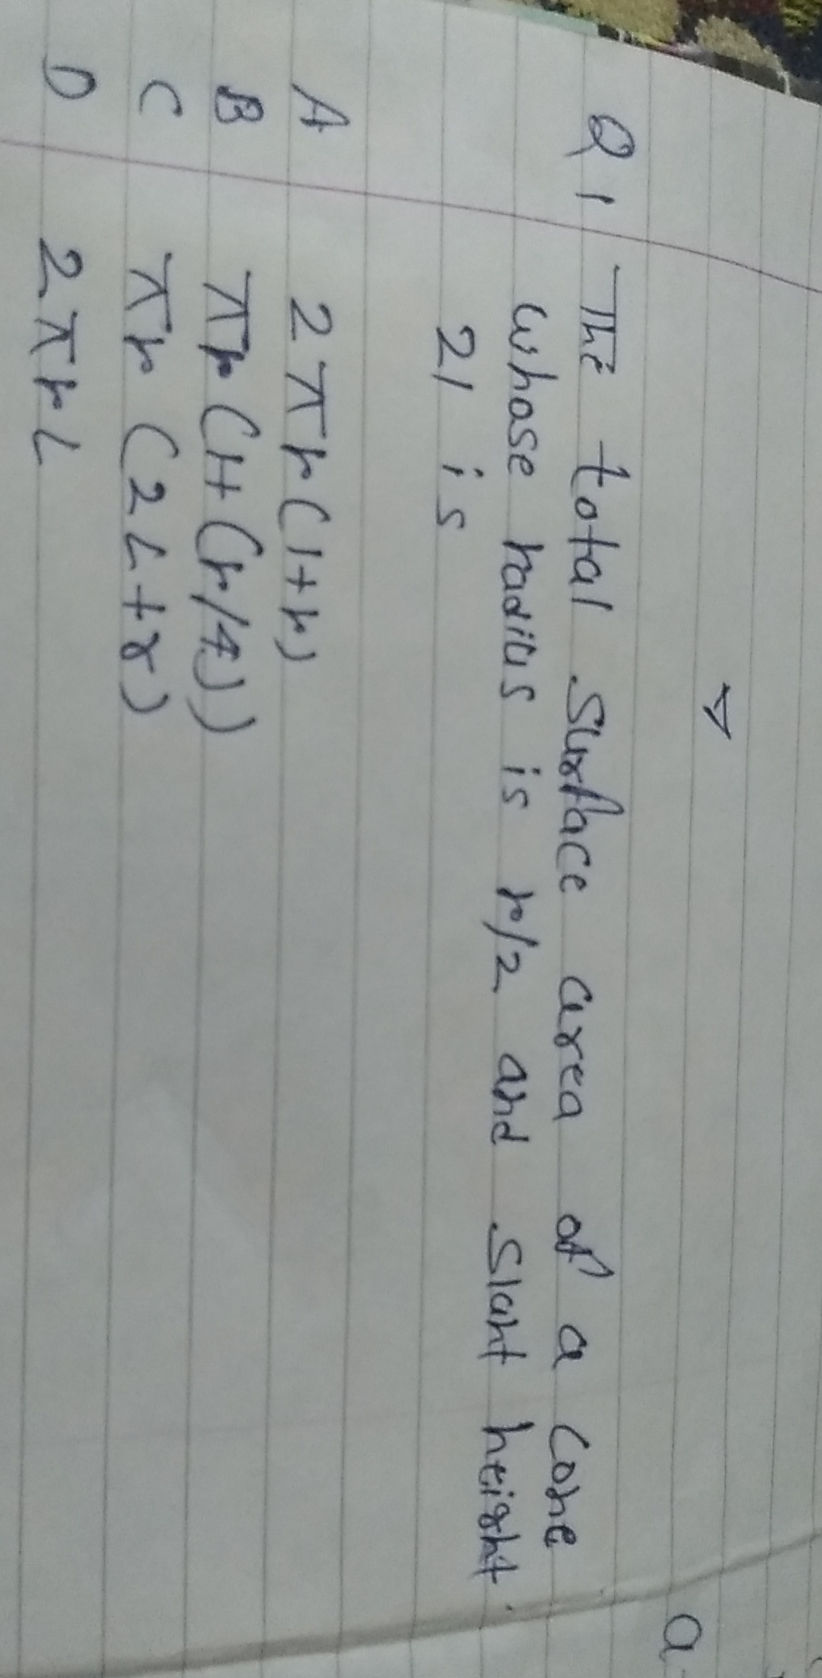 a
Q1 The total surface area of a cone
whose radius is r/2 and slant height
21 is
A 2πr(1+r)
B πr(1+(r/4))
C πr(2L+r)
D 2πrL